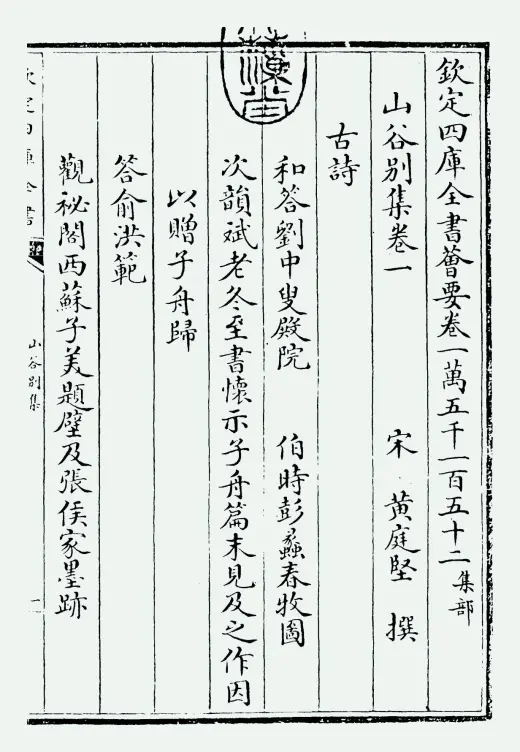 欽定四庫全書薈要卷一萬五千一百五十二 集部
山谷別集卷一 宋 黃庭堅 撰
古詩
和答劉中叟殿院 伯時彭蠡春牧圖
次韻斌老冬至書懷示子舟篇末見及之作因
以贈子舟歸
答俞洪範
觀祕閣西蘇子美題壁及張侯家墨跡
欽定四庫全書
山谷別集